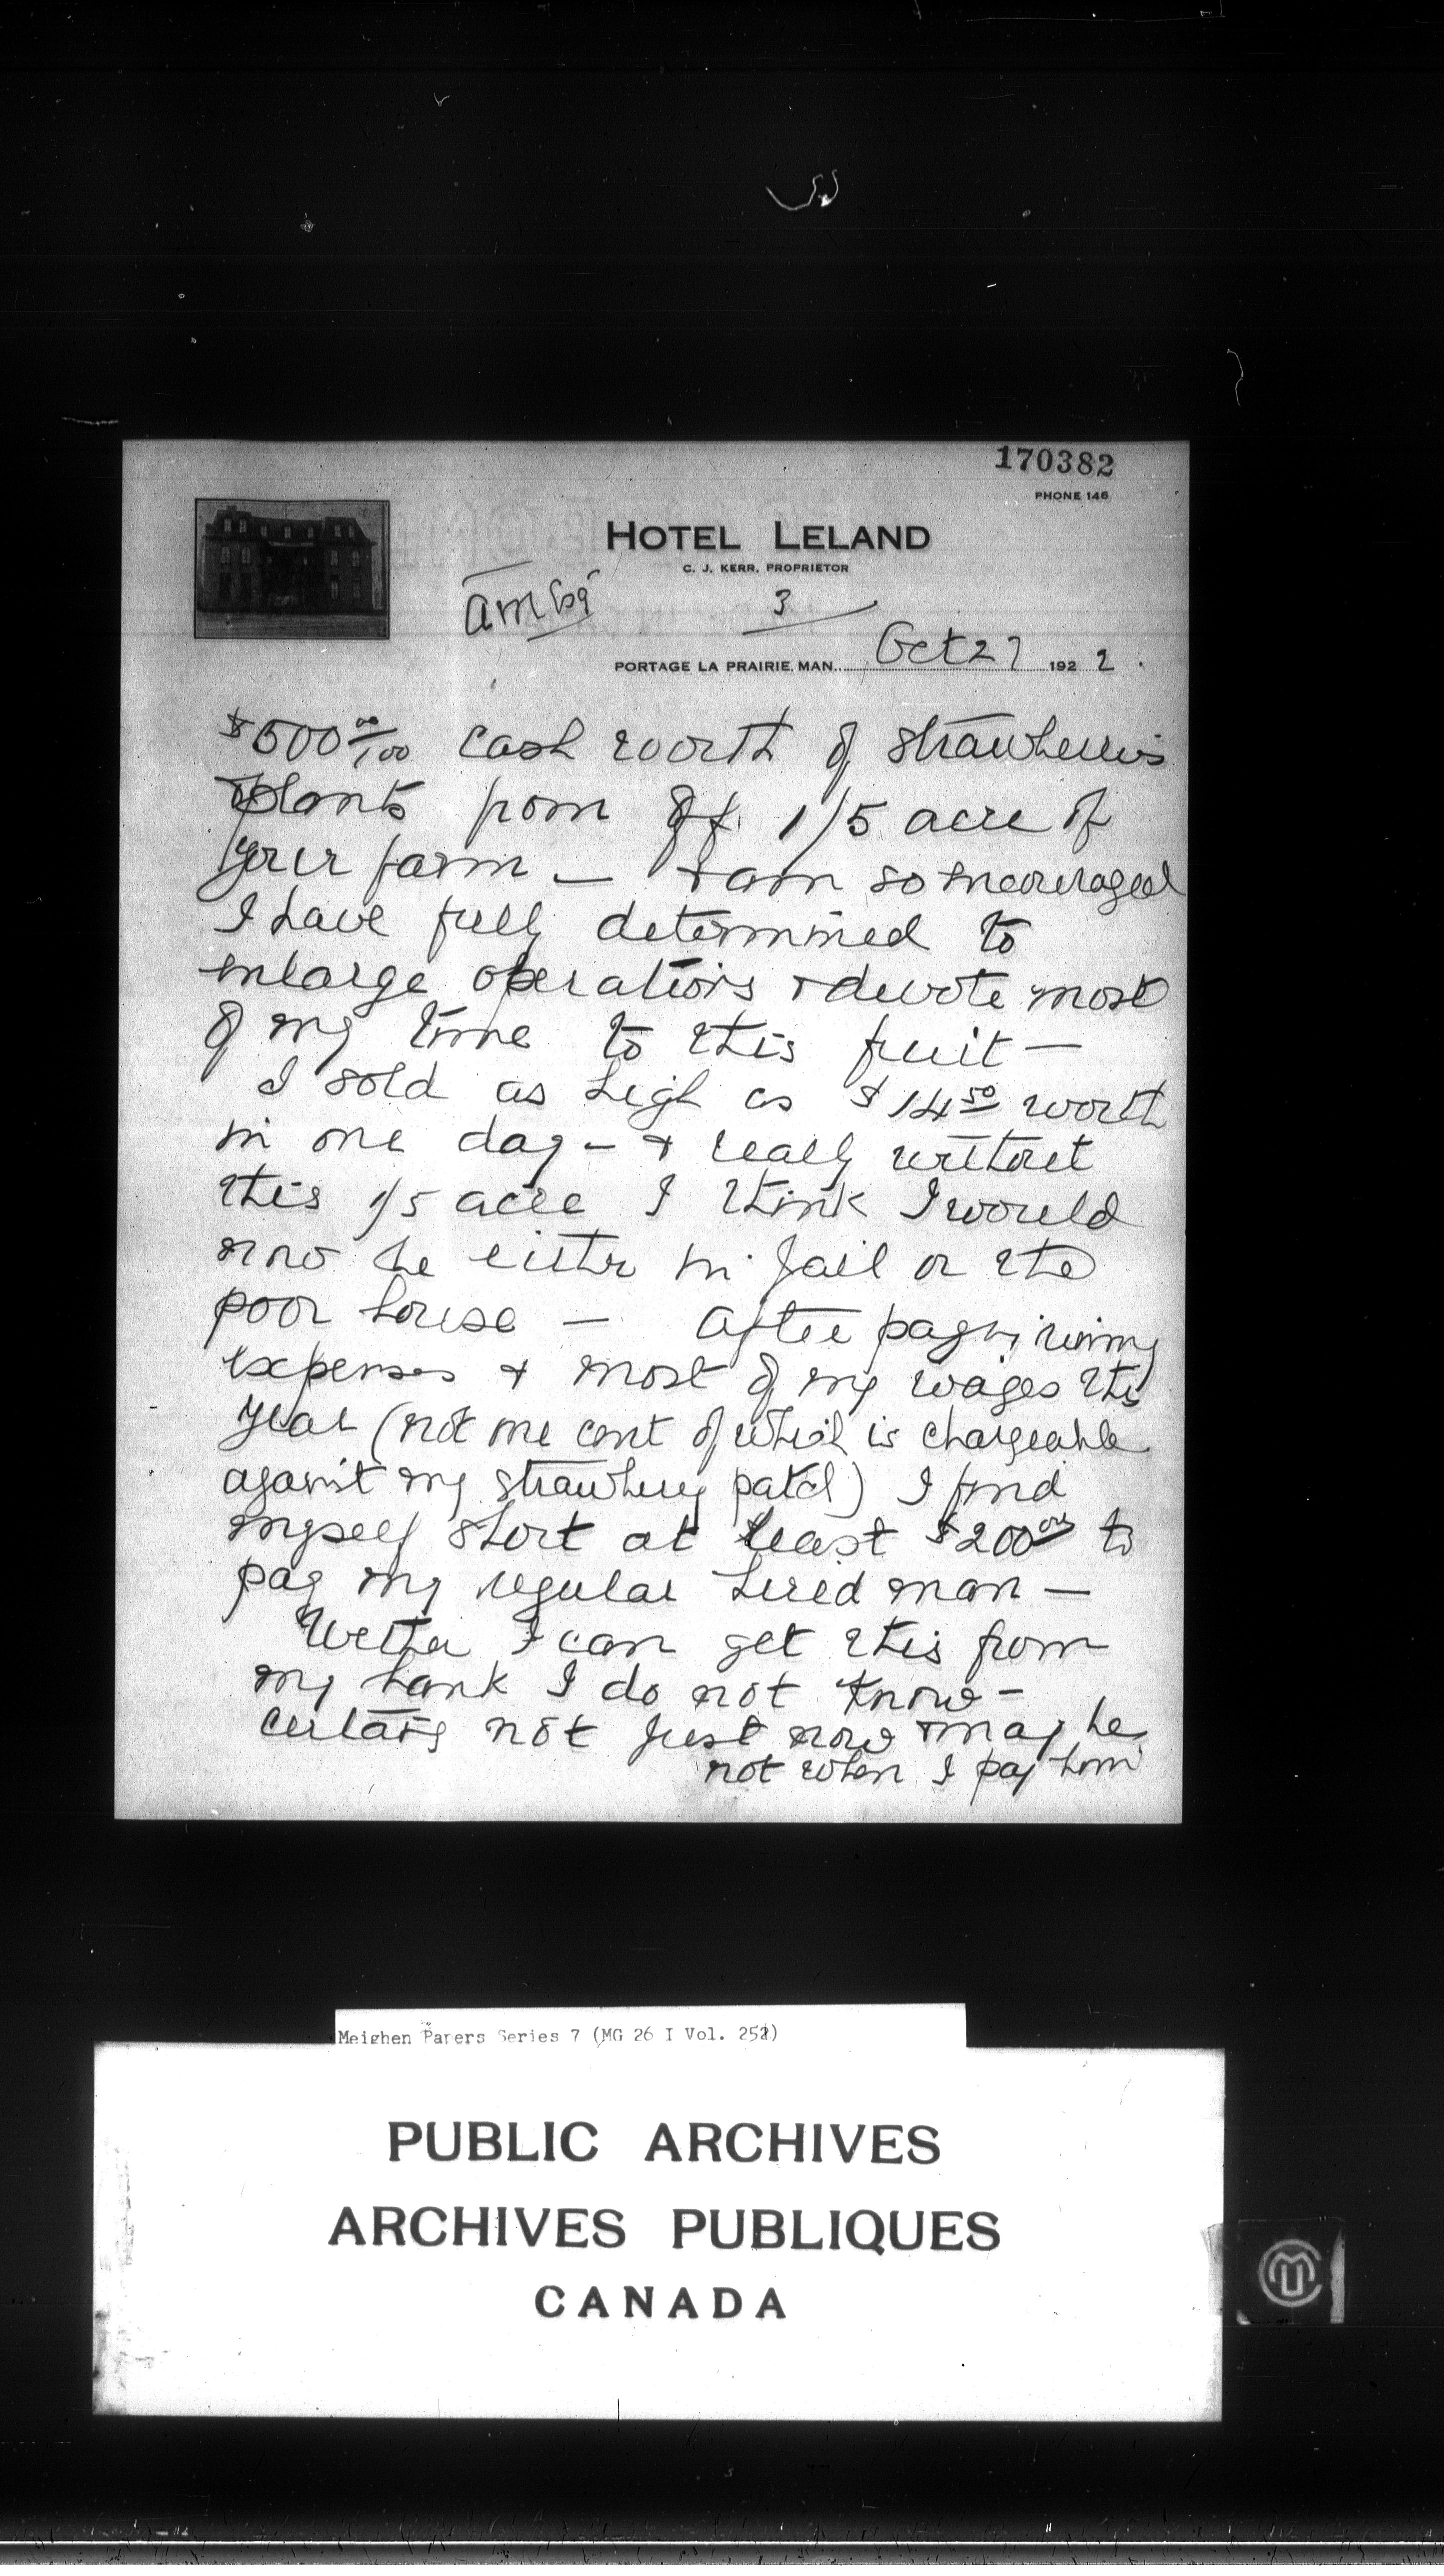 170382
PHONE 146
HOTEL LELAND
C. J. KERR, PROPRIETOR
AM Esq
3
PORTAGE LA PRAIRIE, MAN. Oct 27 1922.
$500 00/100 cash worth of strawberries
plants from off 1/5 acre of
your farm — & am so encouraged
I have fully determined to
enlarge operations & devote most
of my time to this fruit —
I sold as high as $14 50 worth
in one day — & really without
this 1/5 acre I think I would
now be either in jail or the
poor house — After paying
expenses & most of my wages this
year (not one cent of which is chargeable
against my strawberry patch) I find
myself short at least $200 00 to
pay my regular hired man —
Wether I can get this from
my bank I do not know —
certainly not just now & may be
not when I pay him
Meighen Papers Series 7 (MG 26 I Vol. 252)
PUBLIC ARCHIVES
ARCHIVES PUBLIQUES
CANADA